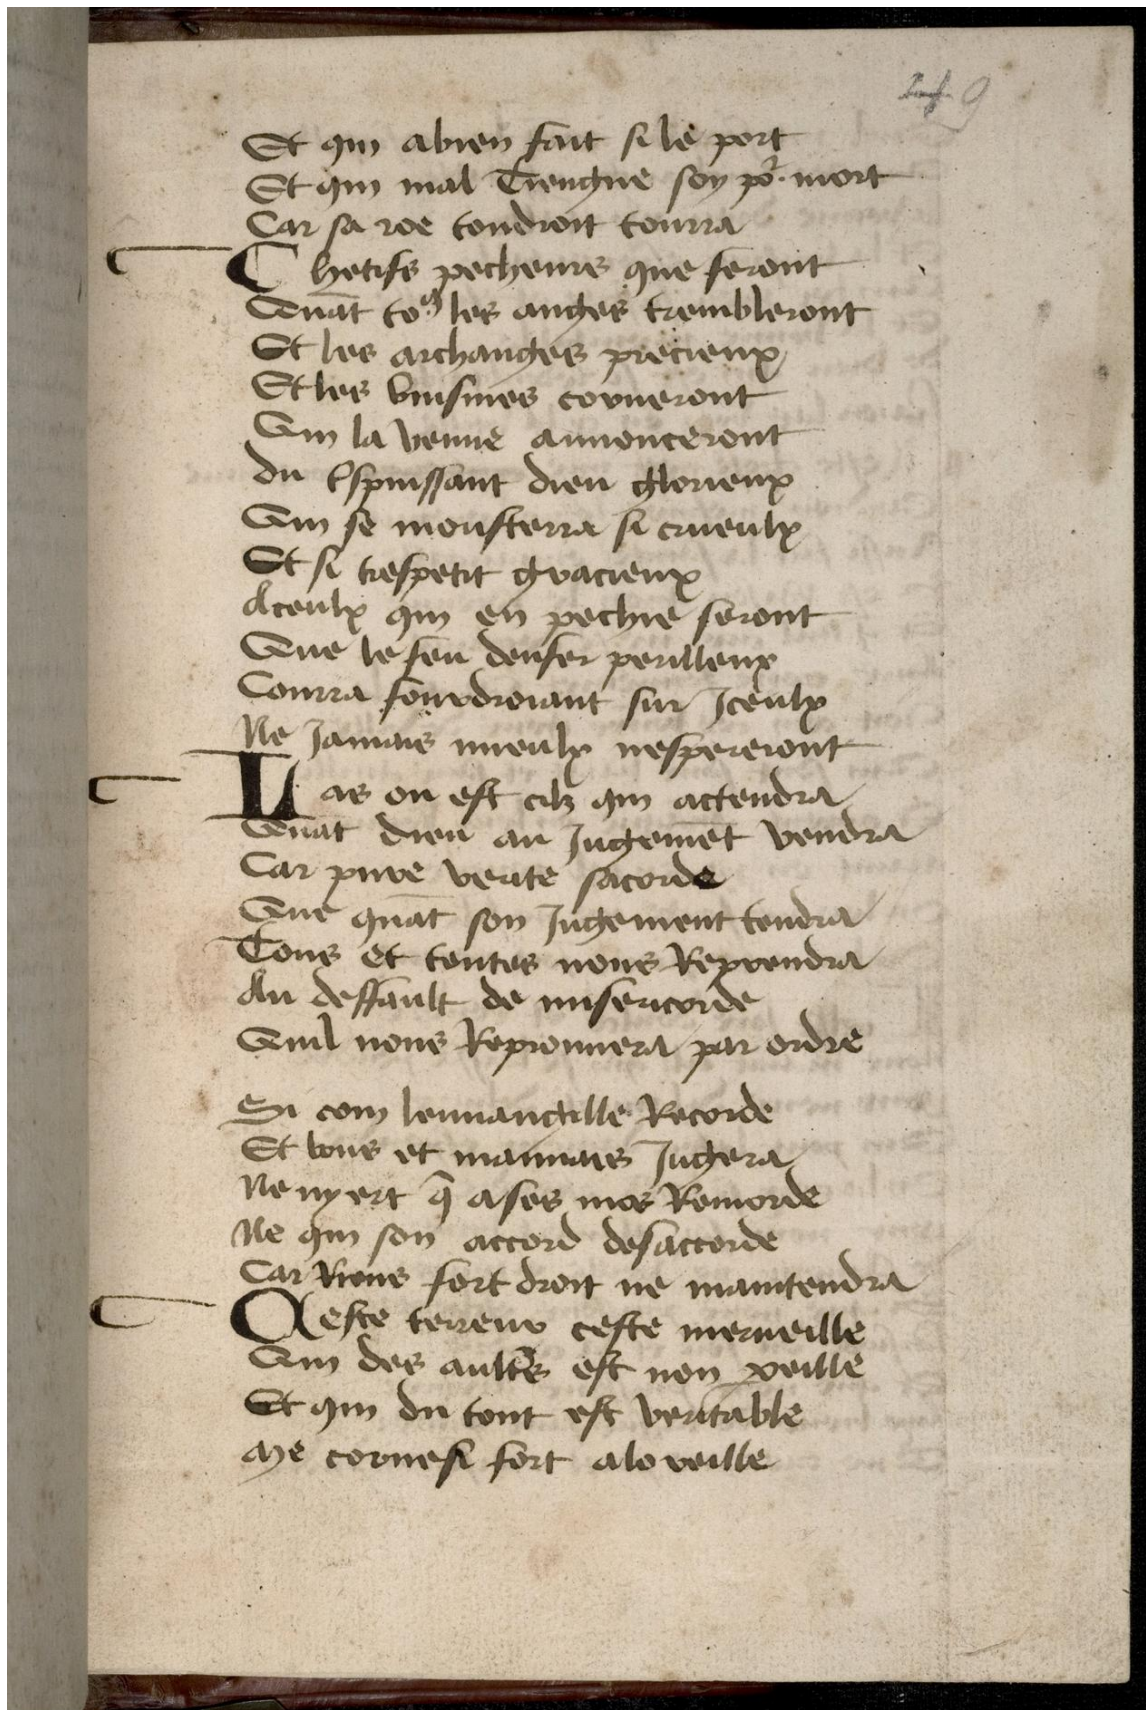 249
Et qui abien fait si le port
Et qui mal Tiengne soy por mort
Car sa roe tondroit tourra
Chetifs pecheurs que feront
Quāt to9 les anges trembleront
Et les archanges precieux
Et les buisines corneront
Qui la venue annonceront
du tspuissant dieu glorieux
Qui se monsterra si crueulx
Et si trespetit gracieux
Aceulx qui en pechie seront
Que le feu denfer perilleux
Courra fouldroiant sur Iceulx
Ne Jamais mieulx nespereront
Las ou est cilz qui actendra
Quāt dieu au Jugemēt vendra
Car pure verite sacorde
Que quāt son Jugement tendra
Tous et toutes nous Reprendra
Au deffault de misericorde
Quil nous Reprouuera par ordre
Si com leuuangille Recorde
Et bons et mauuais Jugera
Ne ny ert q̄ ases mos Remorde
Ne qui son accord desaccorde
Car Riens fort droit ne maintendra
Ceste terreur ceste merueille
Qui des aultres est non peille
Et qui du tout est veritable
Me corne si fort aloreille